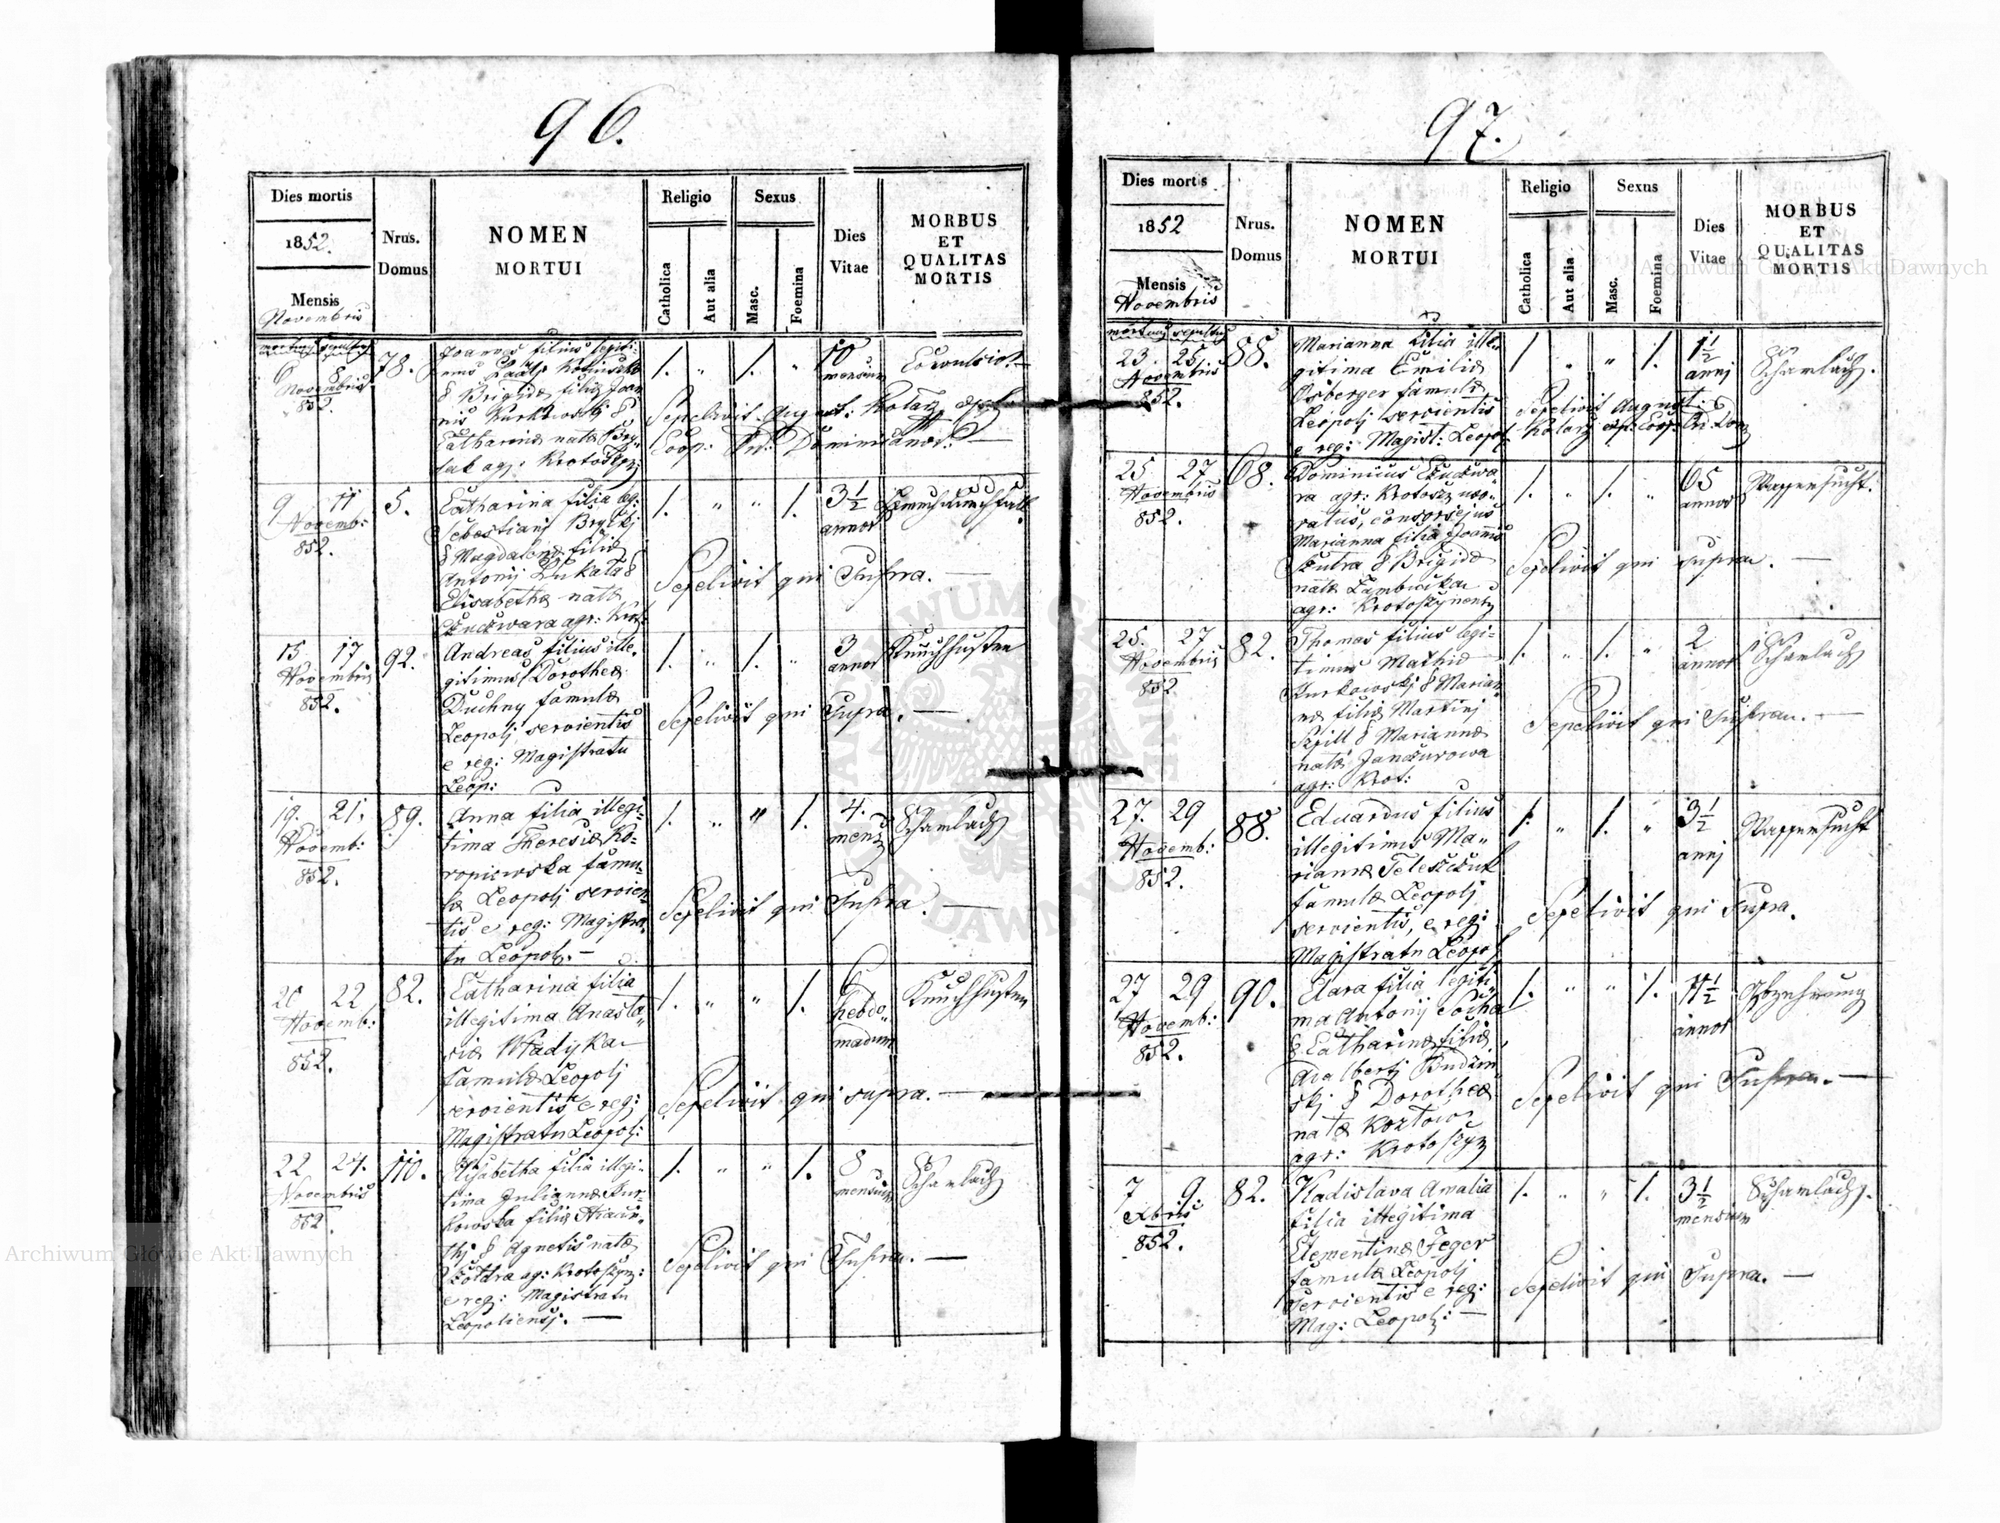 96.
Dies mortis
1852.
Mensis
Novembris
Nrus.
Domus
NOMEN
MORTUI
Religio
Catholica
Aut alia
Sexus
Masc.
Foemina
Dies
Vitae
MORBUS
ET
QUALITAS
MORTIS
mortuus sepultus
6 8
Novembris
852.
78.
Joannes filius legiti-
mus
& Brigidæ filiæ Joan
nis Kurkowskj &
Catharinæ natæ
agr: Krotoszyn
1. " 1. "
10
mensium
Convulsio. —
Sepelivit August: Kolarz
Coop: Or: Dominicanor. —
9 11
Novemb:
852.
5.
Catharina filia leg:
Sebastianj
& Magdalenæ filiæ
Antonij Lukala &
Elisabethæ natæ
agr: Krot:
1. " " 1.
3 1/2
annor
Sepelivit qui Supra. —
15 17
Novembris
852.
92.
Andreas filius ille-
gitimus Dorotheæ
Duchny famulæ
Leopolj servientis
e reg: Magistratu
Leop:
1. " 1. "
3
annor
Keuchhusten
Sepelivit qui Supra. —
19. 21.
Novemb:
852.
89.
Anna filia illegi-
tima Theresiæ Ko-
ropiowska famu-
læ Leopolj servien-
tis e reg: Magistra-
tu Leopol. —
1. " " 1.
4.
mens
Scharlach
Sepelivit qui Supra. —
20 22
Novemb:
852.
82.
Catharina filia
illegitima Anasta-
siæ Wladyka
famulæ Leopolj
servientis, e reg:
Magistratu Leopol:
1. " " 1.
6
hebdo-
madum
Keuchhusten
Sepelivit qui supra. —
22 24.
Novembris
852.
110.
Elisabetha filia illegi-
tima Juliannæ Kur-
kowska filiæ
& Agnetis natæ
ag: Krotoszyn:
e reg: Magistratu
Leopoliensj. —
1. " " 1.
8
mensium
Scharlach
Sepelivit qui Supra. —
97.
Dies mortis
1852
Mensis
Novembris
Nrus.
Domus
NOMEN
MORTUI
Religio
Catholica
Aut alia
Sexus
Masc.
Foemina
Dies
Vitae
MORBUS
ET
QUALITAS
MORTIS
mortuus sepultus
23 25
Novembris
852.
88.
Marianna filia ille-
gitima Emiliæ
Osberger famulæ
Leopolj servientis
e reg: Magist: Leopol
1 " " 1.
1 1/2
annj
Scharlach.
Sepelivit August:
Kolarz Coop: Or: Dom
25 27
Novembris
852.
68.
Dominicus Czuczwa-
ra agr: Krotosz: uxo-
ratus, consors ejus
Marianna filia Joannis
& Brigidæ
natæ
agr: Krotoszynens
1. " 1. "
65
annor
Wassersucht.
Sepelivit qui supra. —
25. 27
Novembris
852
82.
Thomas filius legi-
timus Mathiæ
Kurkowskj & Marian-
næ filiæ Martinj
& Mariannæ
natæ
agr: Krot:
1. " 1. "
2
annor
Scharlach
Sepelivit qui Supra. —
27. 29
Novemb:
852.
88.
Eduardus filius
illegitimus Ma-
riannæ Teleszczuk
famulæ Leopolj
servientis, e reg:
Magistratu Leopol
1. " 1. "
3 1/2
annj
Wassersucht
Sepelivit qui Supra.
27 29
Novemb:
852.
90.
Clara filia legiti-
ma Antonij Socha
& Catharinæ filiæ
Adalbertj Budzin-
skj & Dorotheæ
natæ Kozłow
agr: Krotoszyn
1. " " 1.
11 1/2
annor
Abzehrung
Sepelivit qui Supra. —
7 9.
Xbris
852.
82.
Wladislava Amalia
filia illegitima
Clementinæ Jeger
famulæ Leopolj
servientis e reg:
Mag: Leopol: —
1. " " 1.
3 1/2
mensium
Scharlach.
Sepelivit qui Supra. —
Archiwum Główne Akt Dawnych
Archiwum Główne Akt Dawnych
ARCHIWUM GŁÓWNE AKT DAWNYCH